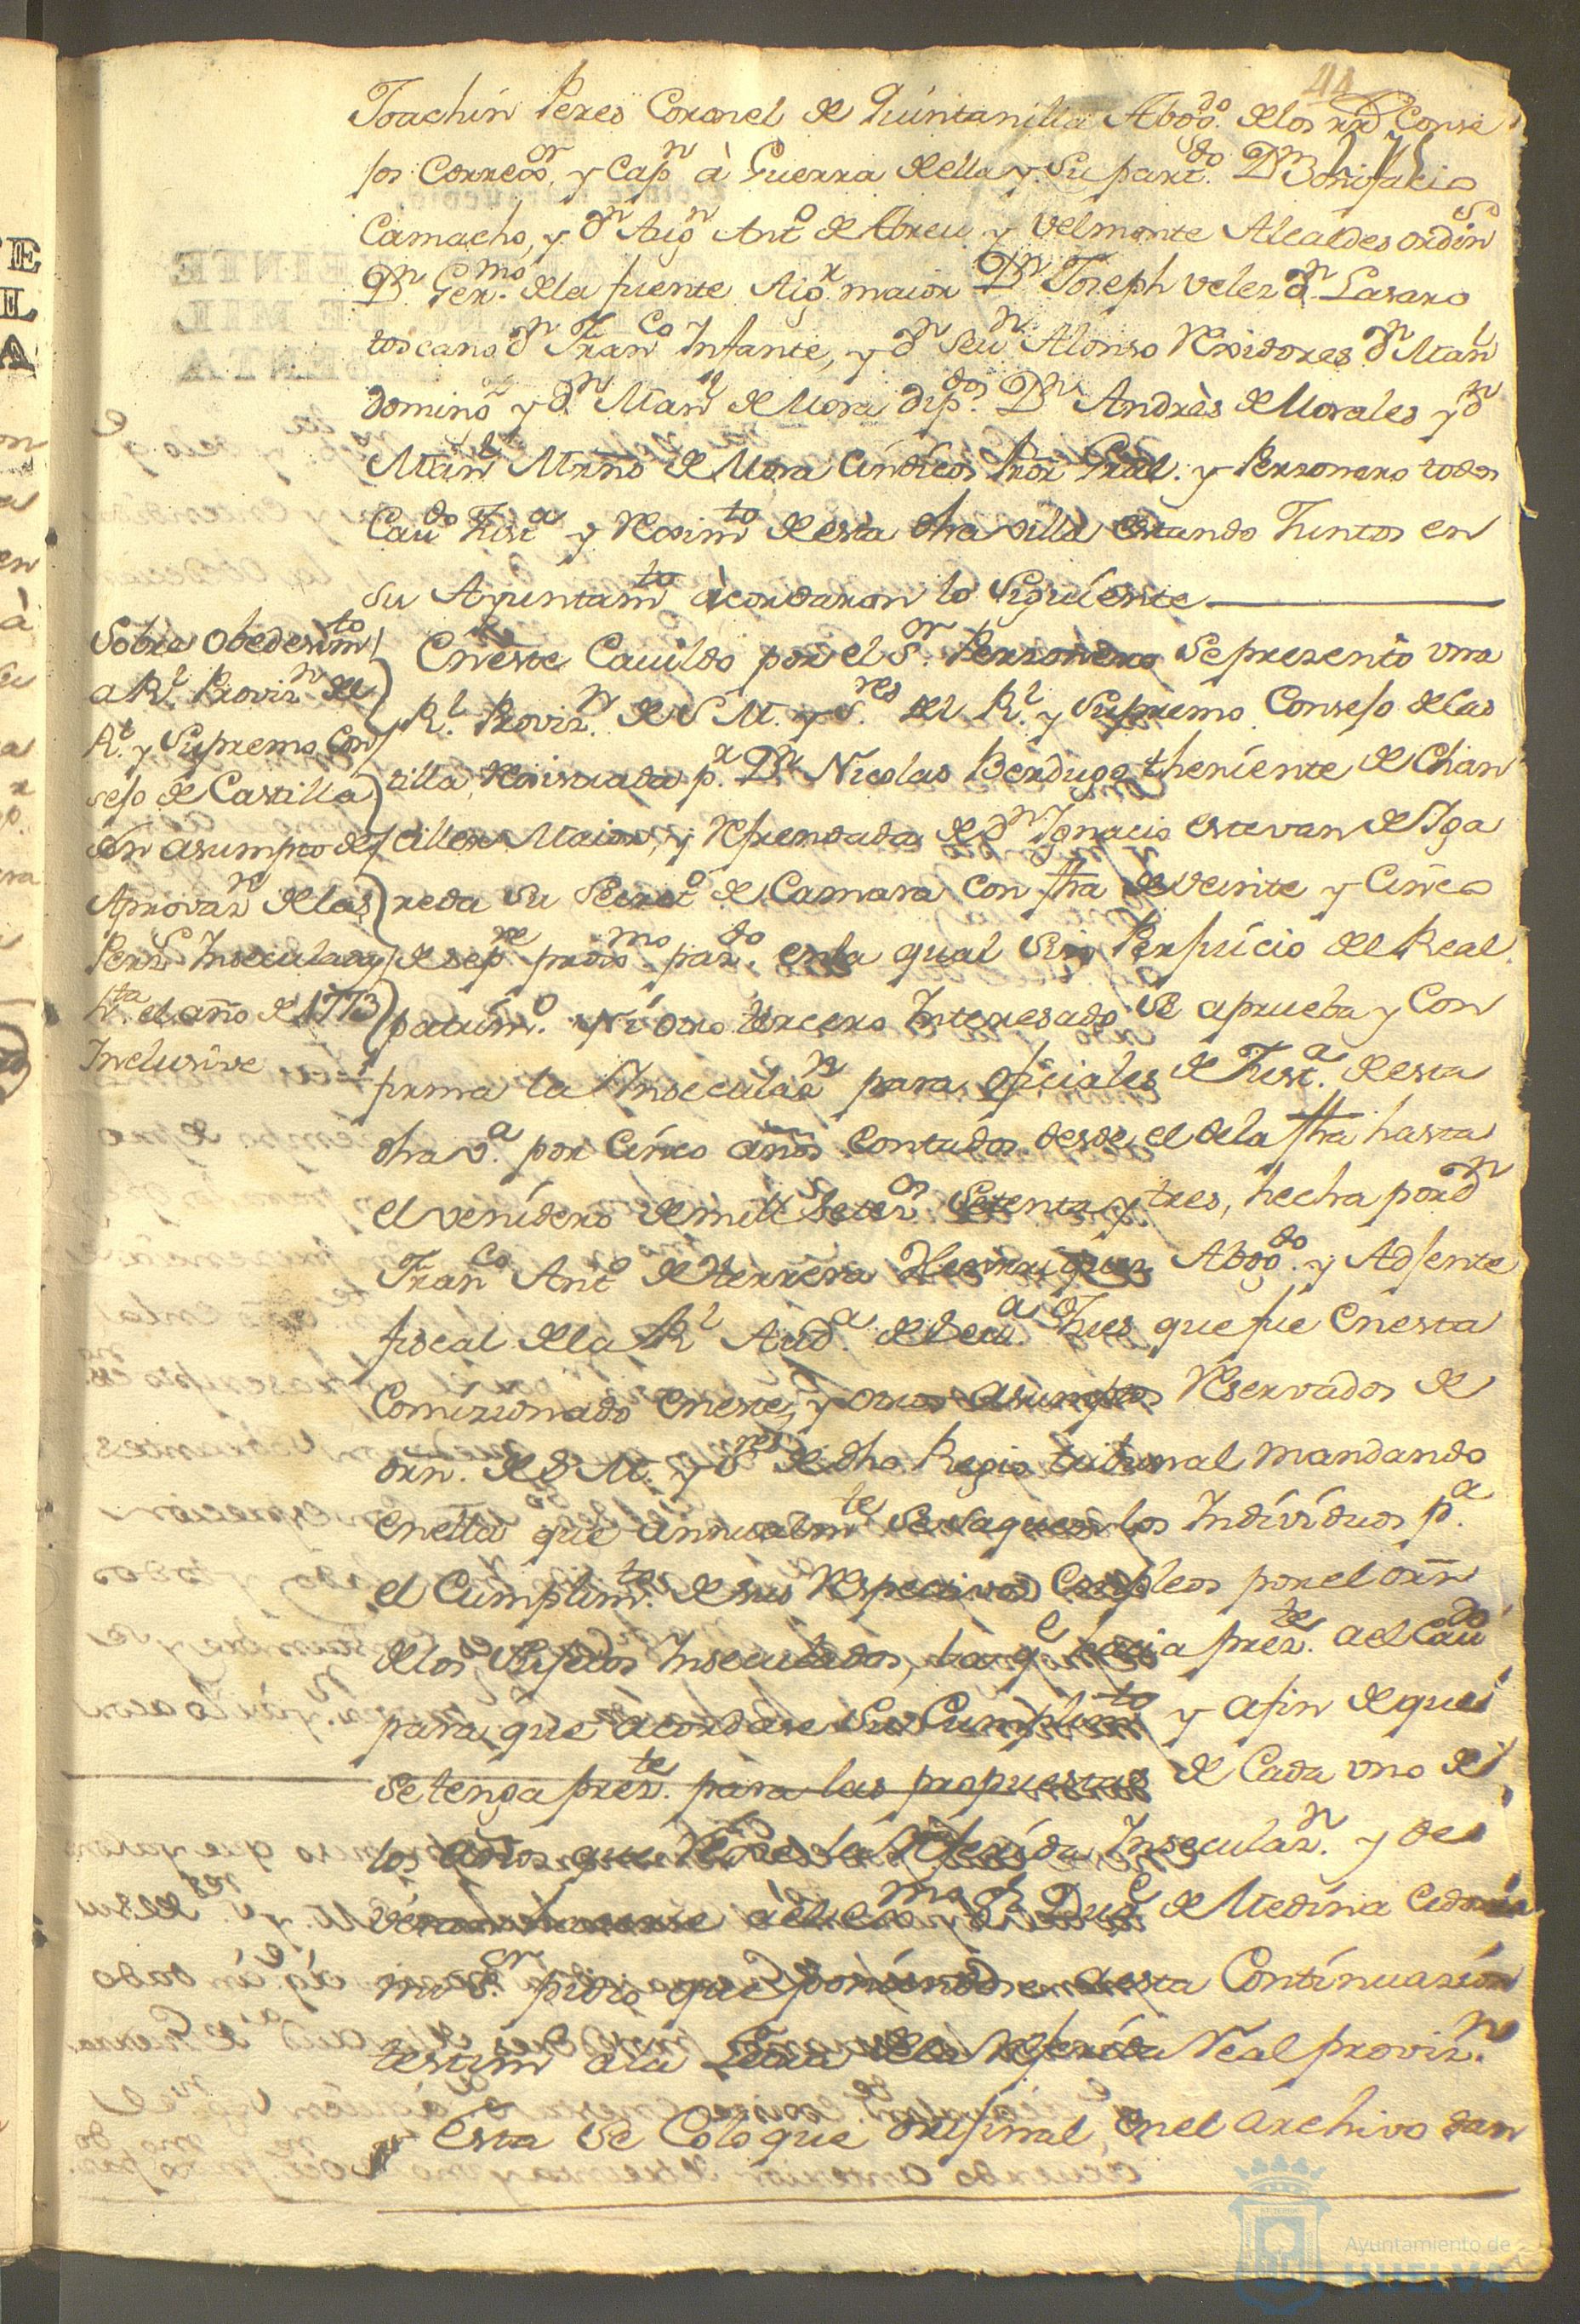 44
Joachin Peres Coronel de Quintanilla Abogdo. de los rrs Conse
jos Corregor. y Capn à Guerra de ella y su partdo. Dn Bonifacio
Camacho, y dn Augn Anto de Abreu y Velmonte Alcaldes ordins
Dn Germo. de la fuente Algr. maior Dn Joseph Velez dn Lasaro
toscano dn Franco Infante, y dn Seun Alonso Rexidores dn Manl
domino y dn Manl de Mora dipdos. Dns Andrès de Morales y dn
Manl Mrno de Mora Cindicos Pror Gral. y Personero todos
Caudo Justa y Reximto de esta dha villa estando Juntos en
su Ayuntamto àcordaron lo Siguiente
Sobre obedesimto
a Rl Provisn del
Rl. y Supremo Con
sejo de Castilla
en asumpto de
Aprovazn de las
Pers Inseculadas
hta. el año de 1773
Inclusive
En este Cauildo por el Sor. Personero se presentò vna
Rl. Provizn. de S M. y Sres del Rl. y Supremo Consejo de Cas
tilla, Rexistrada pr. Dn Nicolas Berdugo theniente de Chan
ciller Maior, y Refrendada de dn Ignacio estevan de Higa
reda su Secreto de Camara con fha de veinte y Cinco
de sepre proxmo pasdo. en la qual Sin Perjuicio del Real
patrimo. Ni otro tercero Interesado se aprueba y Con
firma la Inseculazn para oficiales de Justa. de esta
dha va. por Cinco años Contados desde el de la fha hasta
el venidero de mill Setesos Setenta y tres, hecha por dn
Franco Anto de Herrera Henrriquez Abogdo. y Ajente
fiscal de la Rl Auda. de Seua Jues que fue en esta
Comizionado en este, y otros asumptos Reservados de
orn. de S M. y Sres de dho Regio tribunal mandando
en ella que annualmte se saquen los Individuos pa.
el Cumplimto. de sus Respectivos Empleos por el orñ
de los Sujetos Inseculados, la qe hacia preste. a el Caudo
para que acordase su Cumplimto y afin de que
se tenga preste. para las propuestas de Cada vno de
los años que Rije la Referida Inseculazn. y de
verse hacerse à el exmo Sr Duqe de Medina Cidonia
mi Sor. pidio que poniendose a esta Continuazion
testimo a la Letra de la Referida Real provizn.
esta se Coloque orijinal, en el archivo dan
Ayuntamiento de
HUELVA